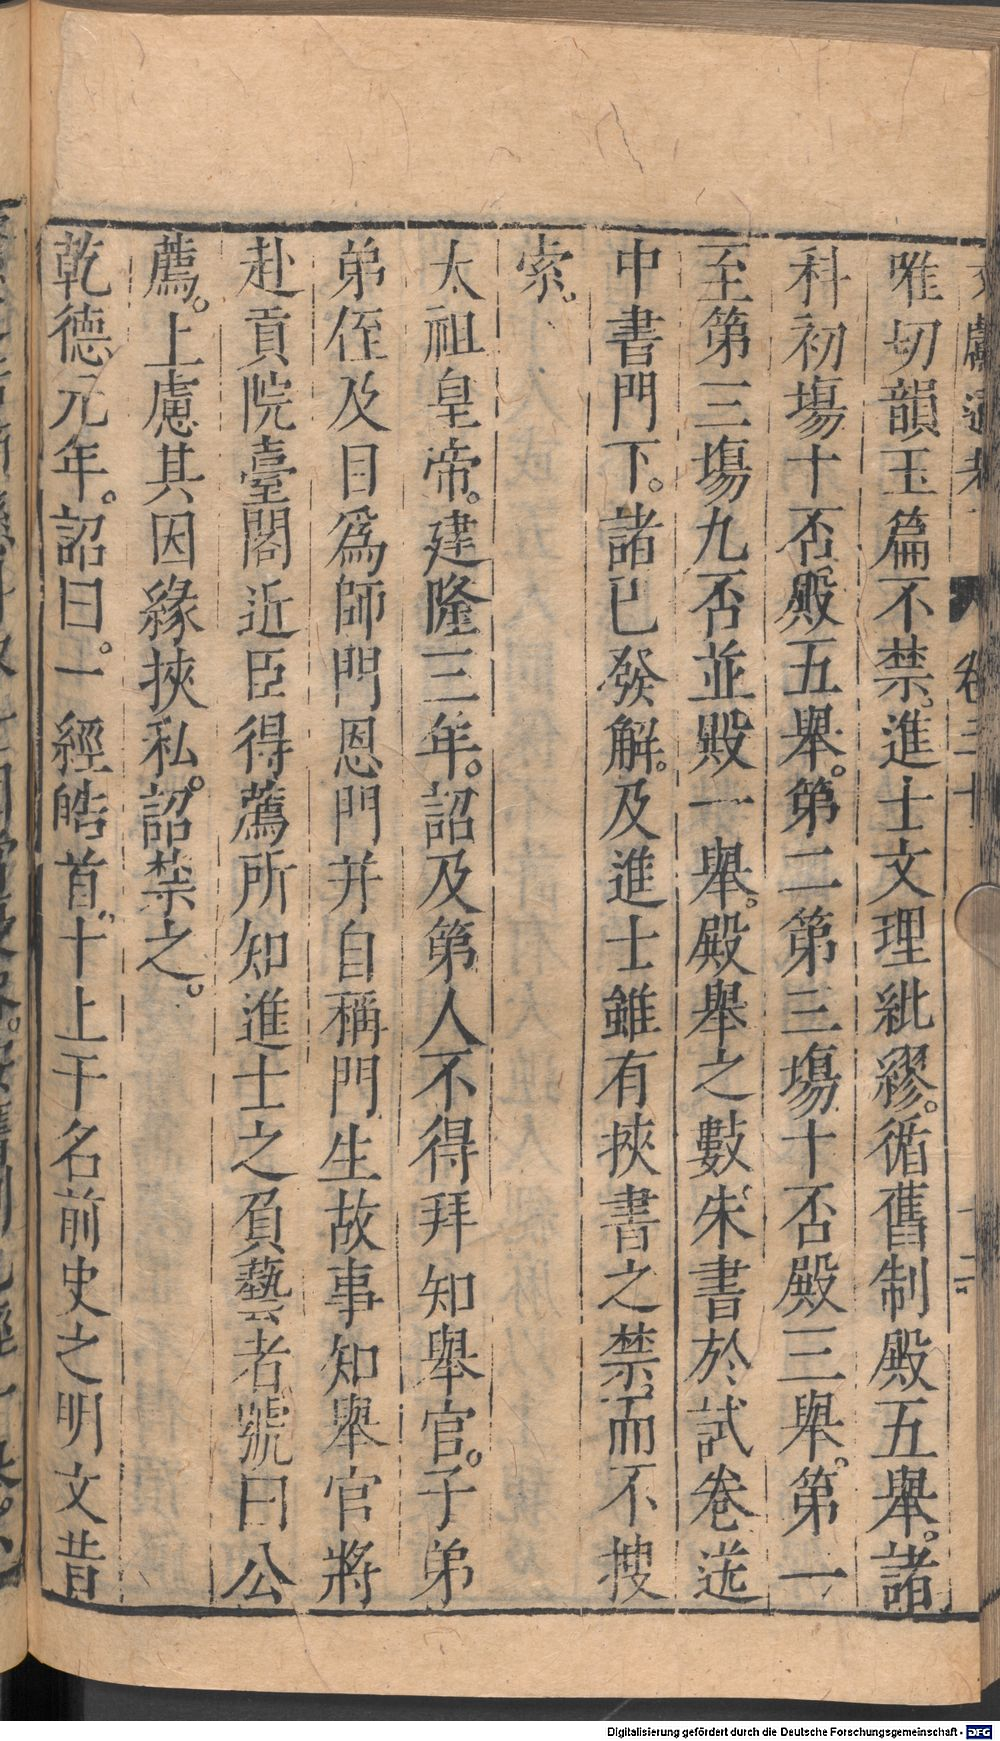 文獻通考 卷三十
唯切韻玉篇不禁進士文理紕繆。循舊制殿五舉。諸
科初場十否殿五舉。第二第三場十否殿三舉。第一
至第三場九否並殿一舉。殿舉之數朱書於試卷送
中書門下。諸已發解。及進士雖有挾書之禁而不搜
索。
太祖皇帝。建隆三年。詔及第人不得拜知舉官。子弟
弟侄及目爲師門恩門并自稱門生故事知舉官將
赴貢院臺閣近臣得薦所知進士之負藝者號曰公
薦。上慮其因緣挾私。詔禁之。
乾德元年。詔曰。一經皓首十上干名前史之明文昔
Digitalisierung gefördert durch die Deutsche Forschungsgemeinschaft - DFG